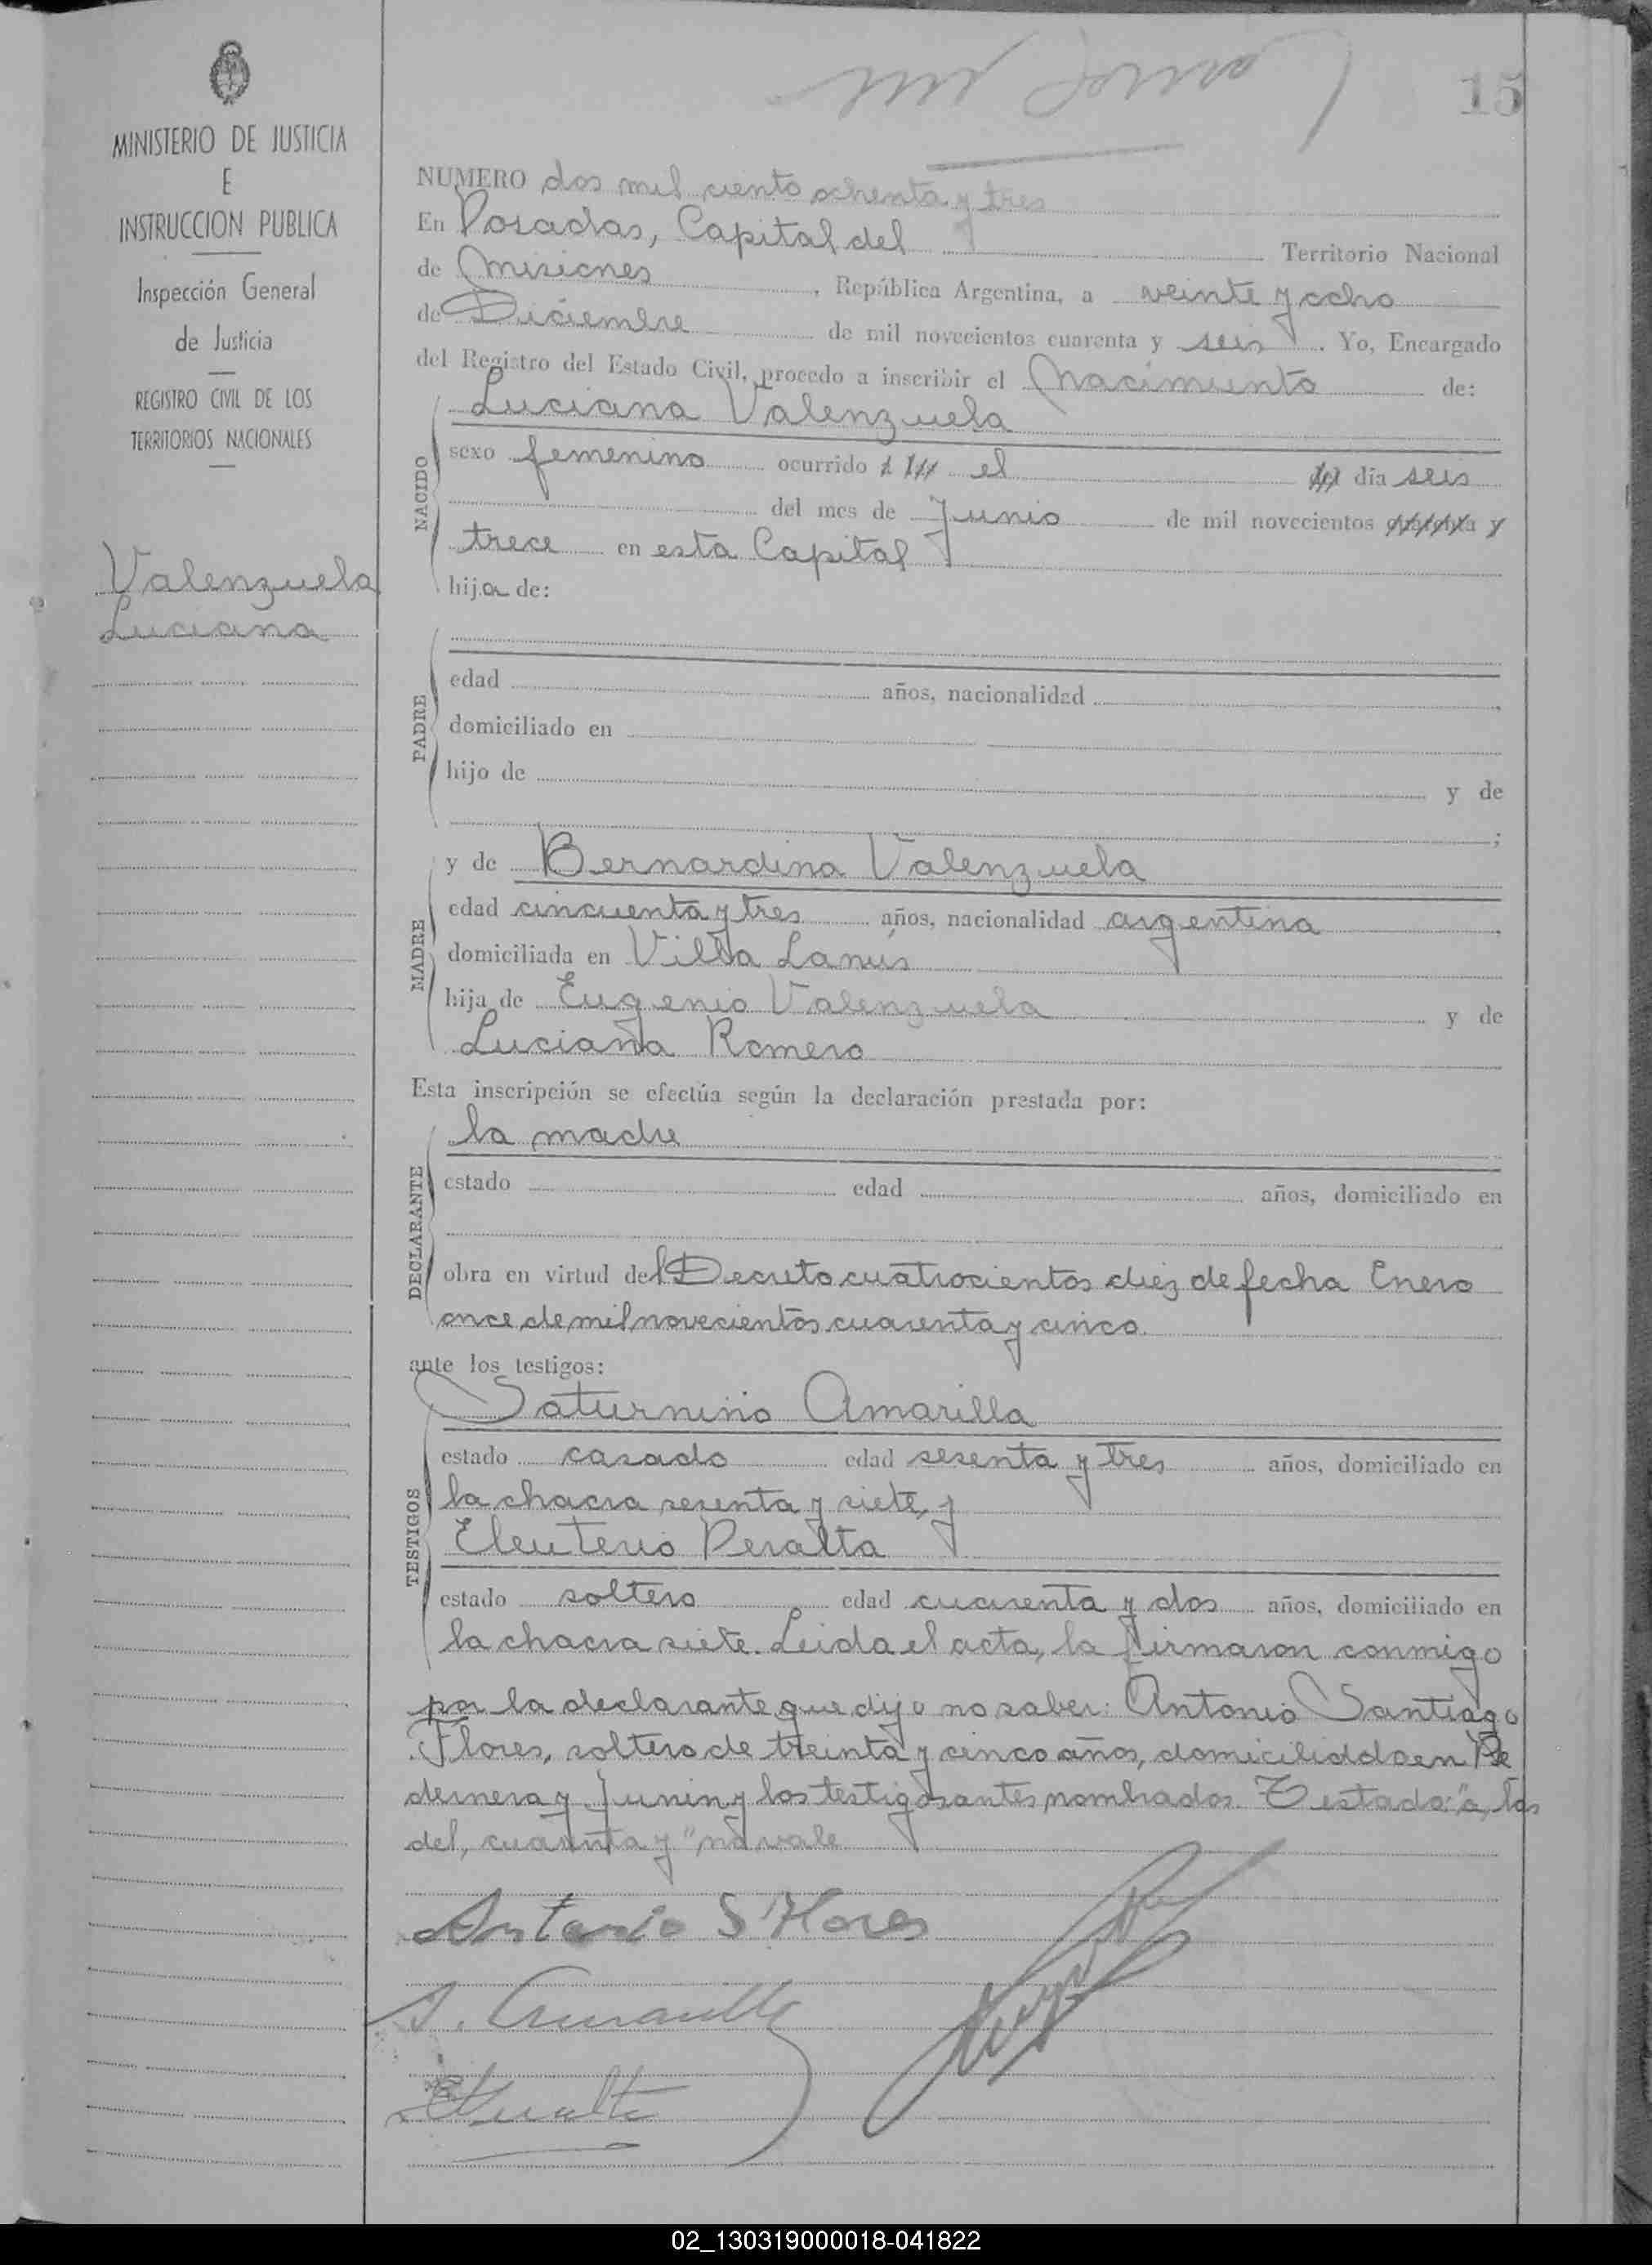 15
MINISTERIO DE JUSTICIA
E
INSTRUCCION PUBLICA
Inspección General
de Justicia
REGISTRO CIVIL DE LOS
TERRITORIOS NACIONALES
Valenzuela
Luciana
NUMERO dos mil ciento ochenta y tres
En Posadas, Capital del Territorio Nacional
de Misiones, República Argentina, a veinte y ocho
de Diciembre de mil novecientos cuarenta y seis. Yo, Encargado
del Registro del Estado Civil, procedo a inscribir el Nacimiento de:
NACIDO
Luciana Valenzuela
sexo femenino ocurrido el día seis
del mes de Junio de mil novecientos
trece en esta Capital
hija de:
PADRE
edad años, nacionalidad
domiciliado en
hijo de y de
;
MADRE
y de Bernardina Valenzuela
edad cincuenta y tres años, nacionalidad argentina
domiciliada en Villa Lanús
hija de Eugenio Valenzuela y de
Luciana Romero
Esta inscripción se efectúa según la declaración prestada por:
DECLARANTE
la madre
estado edad años, domiciliado en
obra en virtud del Decreto cuatrocientos diez de fecha Enero
once de mil novecientos cuarenta y cinco
ante los testigos:
TESTIGOS
Saturnino Amarilla
estado casado edad sesenta y tres años, domiciliado en
la chacra sesenta y siete, y
Eleuterio Peralta
estado soltero edad cuarenta y dos años, domiciliado en
la chacra siete. Leida el acta, la firmaron conmigo
por la declarante que dijo no saber: Antonio Santiago
Flores, soltero de treinta y cinco años, domiciliado en Pe
dernera y Junin y los testigos antes nombrados. Testado: "a, las
del, cuarenta y" no vale
Antonio S Flores
S. Amarilla
EPeralta
02_130319000018-041822